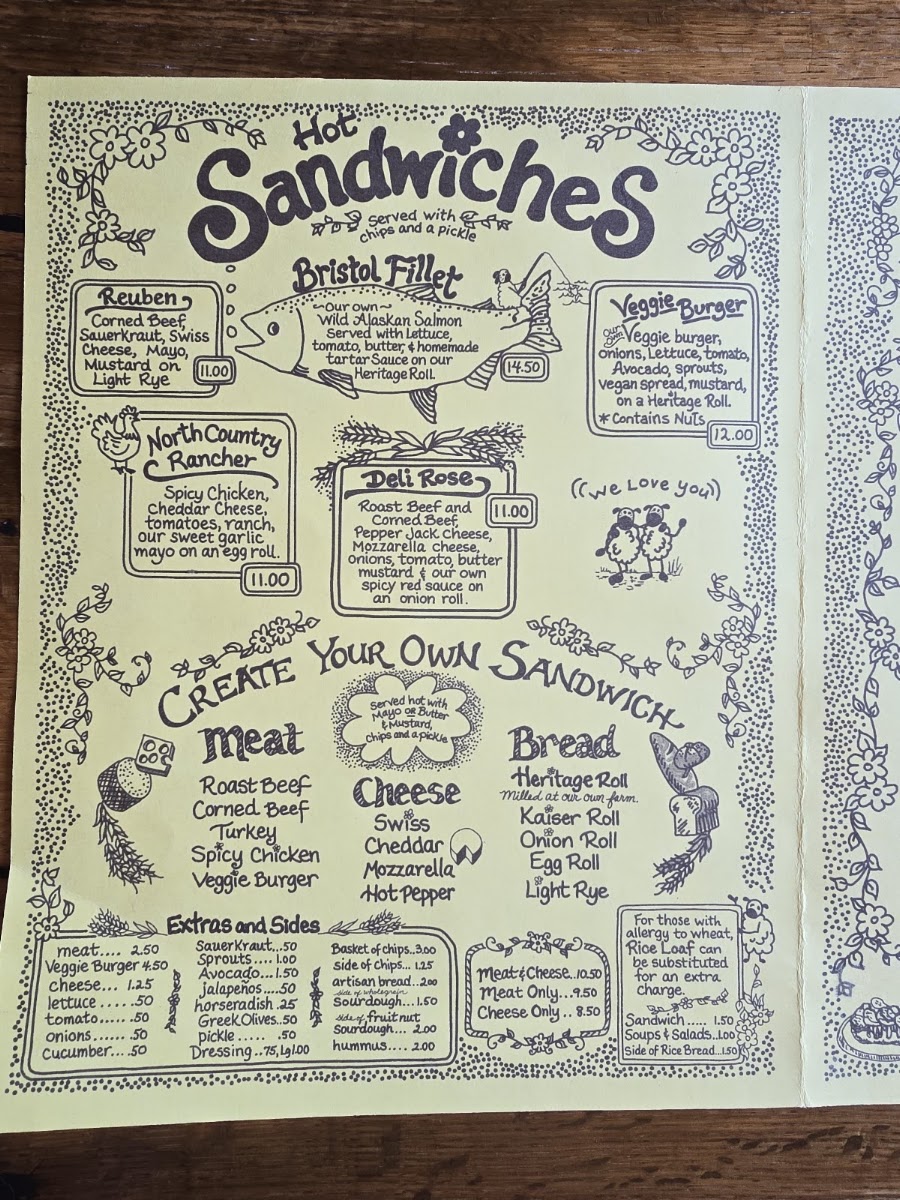 Hot
Sandwiches
served with
chips and a pickle
Reuben
Corned Beef,
Sauerkraut, Swiss
Cheese, Mayo,
Mustard on
Light Rye
11.00
Bristol Fillet
~Our own~
Wild Alaskan Salmon
Served with Lettuce,
tomato, butter, & homemade
tartar Sauce on our
Heritage Roll.
14.50
Veggie Burger
Our Own Veggie burger,
onions, Lettuce, tomato,
Avocado, sprouts,
vegan spread, mustard,
on a Heritage Roll.
*Contains Nuts
12.00
North Country
Rancher
Spicy Chicken,
Cheddar Cheese,
tomatoes, ranch,
our sweet garlic
mayo on an egg roll.
11.00
Deli Rose
11.00
Roast Beef and
Corned Beef,
Pepper Jack cheese,
Mozzarella cheese,
onions, tomato, butter
mustard & our own
spicy red sauce on
an onion roll.
((We Love you))
Create Your Own Sandwich
Served hot with
Mayo or Butter
& Mustard,
chips and a pickle
Meat
Roast Beef
Corned Beef
Turkey
Spicy Chicken
Veggie Burger
Cheese
Swiss
Cheddar
Mozzarella
Hot Pepper
Bread
Heritage Roll
Milled at our own farm.
Kaiser Roll
Onion Roll
Egg Roll
Light Rye
Extras and Sides
meat.... 2.50
Veggie Burger 4.50
cheese... 1.25
lettuce ..... .50
tomato...... .50
onions...... .50
cucumber....50
Sauerkraut...50
Sprouts.... 1.00
Avocado...1.50
jalapeños.....50
horseradish .25
Greek Olives..50
pickle ..... .50
Dressing..75, Lg 1.00
Basket of chips..3.00
side of chips... 1.25
artisan bread..2.00
side of wholegrain
Sourdough....1.50
side of fruit nut
Sourdough.... 2.00
hummus.... 2.00
Meat & Cheese...10.50
Meat Only...9.50
Cheese Only .. 8.50
For those with
allergy to wheat,
Rice Loaf can
be substituted
for an extra
charge.
Sandwich ..... 1.50
Soups & Salads..1.00
Side of Rice Bread..1.50